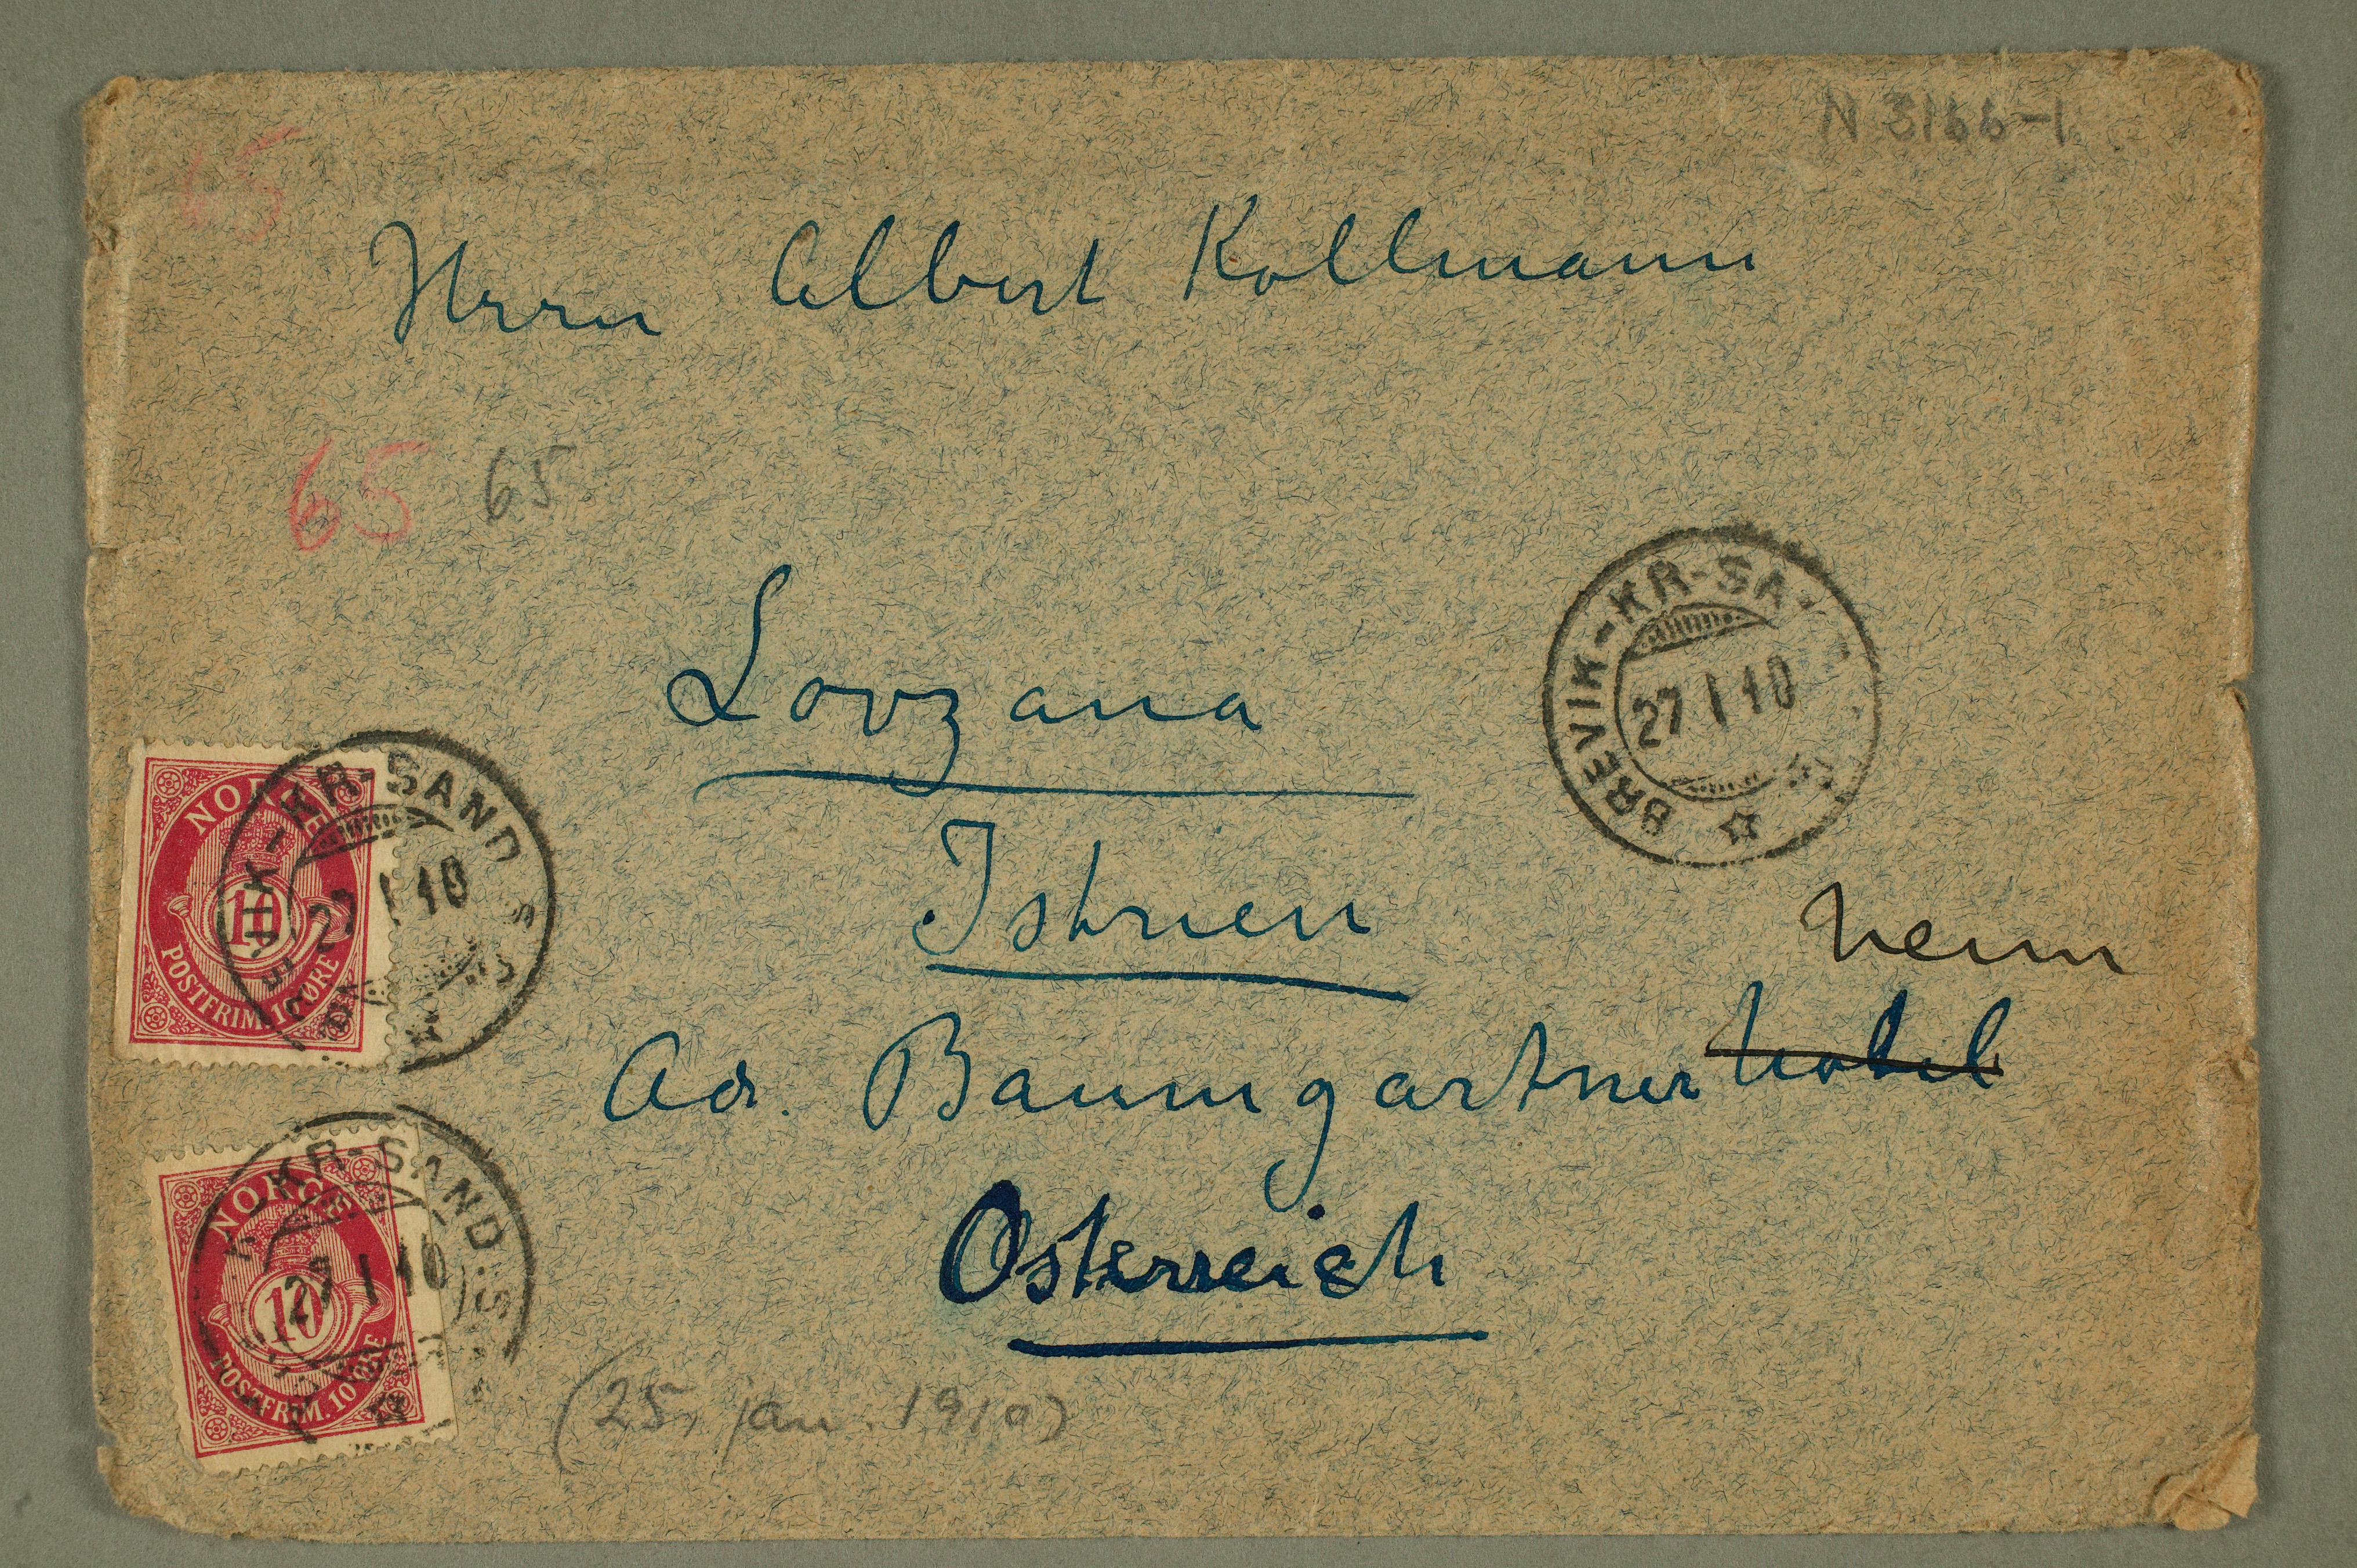 N 3166-1
65
Herrn Albert Kollmann
65 65
Lovzana
Istrien
BREVIK-KR-SA
27 1 10
nenn
Ad. Baumgartner Hotel
Österreich
(25, jan. 1910)
NORGE
10
POSTFRIM. 10 ØRE
BREVIK-KR-SAND S
27 1 10
NORGE
10
POSTFRIM. 10 ØRE
KR-SAND.S
27 1 10